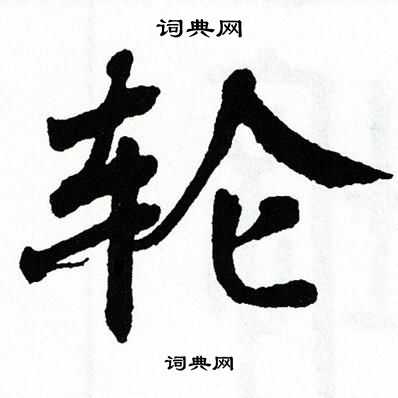 词典网
轮
词典网